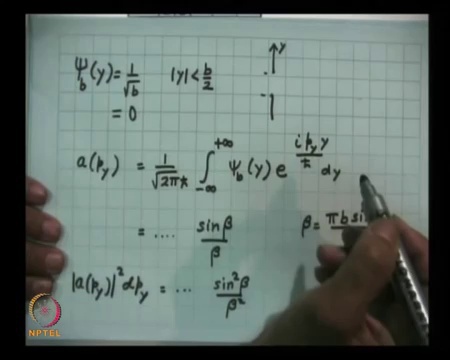 Ψ_b(y) = 1/√b |y| < b/2
= 0
y
a(p_y) = 1/√(2πħ) ∫_{-∞}^{+∞} Ψ_b(y) e^{i p_y y/ħ} dy
= .... sin β / β β = π b
|a(p_y)|² dp_y = ... sin² β / β²
NPTEL